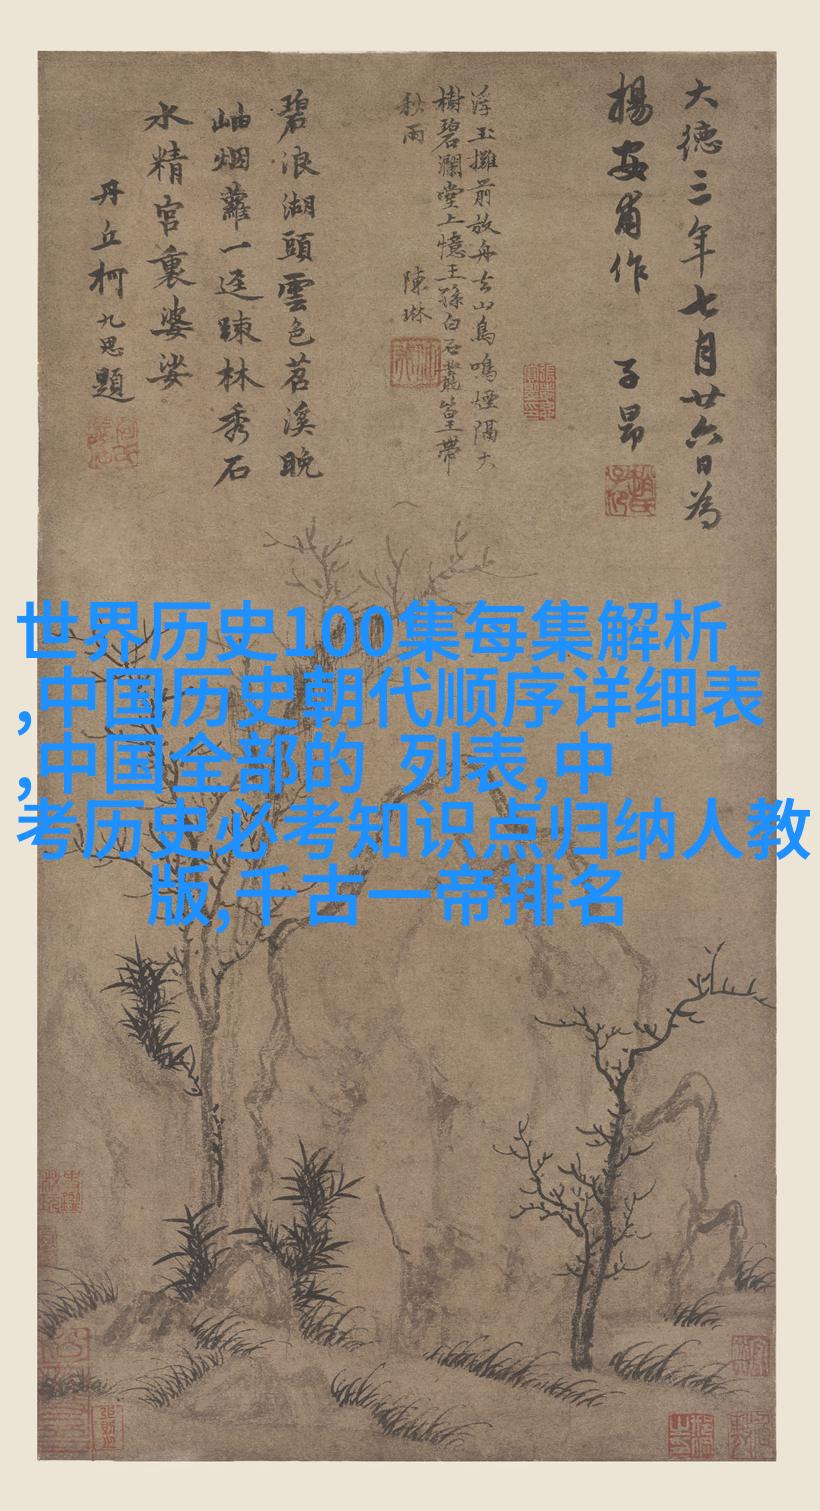 大德三年七月廿六日為
楊安甫作 子昂
浮玉攤前放舟去山鳥鳴煙隔大
樹碧瀾堂上憶王孫白石叢篁帶
秋雨 陳琳
碧浪湖頭雲色苕溪晚
岫烟蘿一逕踈林秀石
水精宮裏婆娑
丹丘柯九思題
世界历史100集每集解析
,中国历史朝代顺序详细表
,中国全部的 列表,中
考历史必考知识点归纳人教
版,千古一帝排名